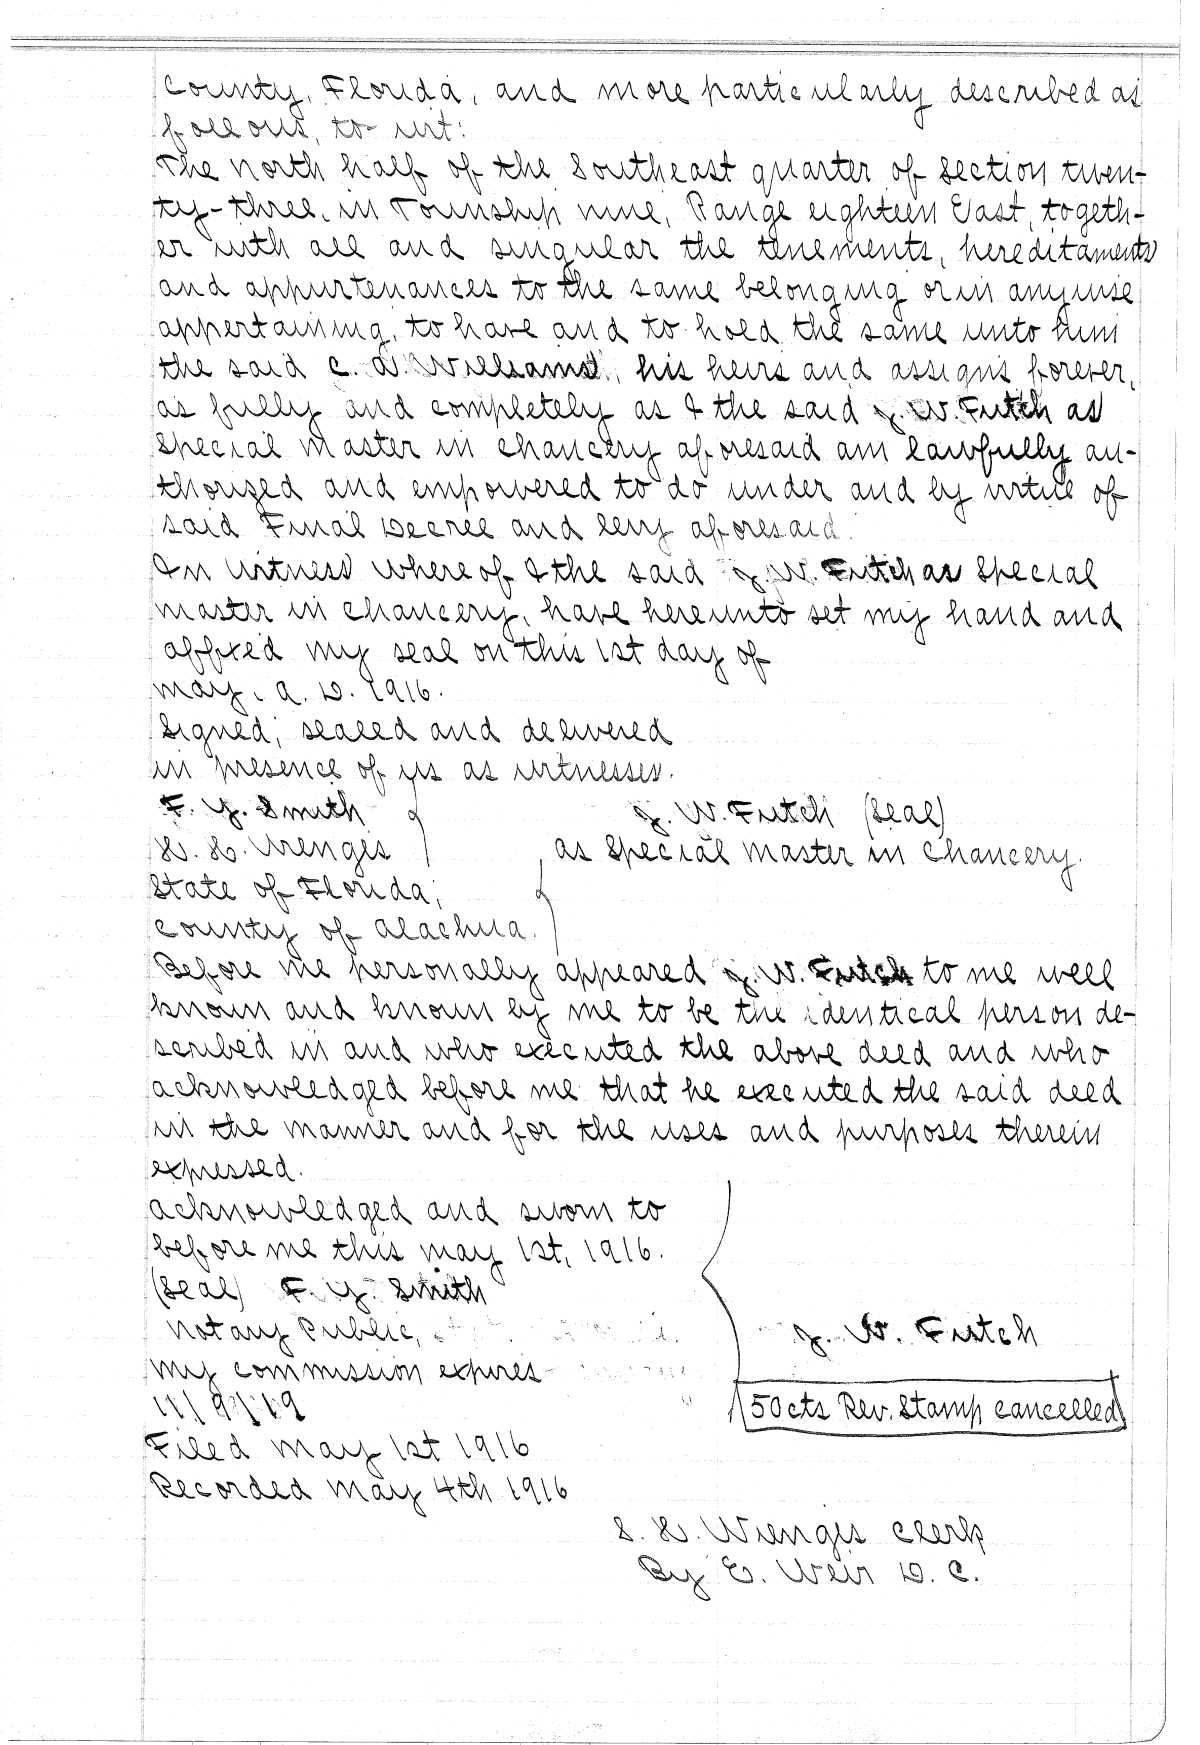 County, Florida, and more particularly described as
follows, to-wit:
The North half of the Southeast quarter of Section twen-
ty-three, in Township nine, Range eighteen East, togeth-
er with all and singular the tenements, hereditaments
and appurtenances to the same belonging or in anywise
appertaining, to have and to hold the same unto him
the said C. A. Williams, his heirs and assigns forever,
as fully and completely as I the said J. W. Futch as
Special Master in Chancery aforesaid am lawfully au-
thorized and empowered to do under and by virtue of
said Final Decree and levy aforesaid.
In Witness Whereof I the said J. W. Futch as Special
Master in Chancery, have hereunto set my hand and
affixed my seal on this 1st day of
May, A. D. 1916.
Signed, sealed and delivered
in presence of us as witnesses.
F. Y. Smith J. W. Futch (Seal)
S. H. Wienges as Special Master in Chancery.
State of Florida,
County of Alachua.
Before me personally appeared J. W. Futch to me well
known and known by me to be the identical person de-
scribed in and who executed the above deed and who
acknowledged before me that he executed the said deed
in the manner and for the uses and purposes therein
expressed.
Acknowledged and sworn to
before me this May 1st, 1916.
(Seal) F. Y. Smith
Notary Public, J. W. Futch
My commission expires
50cts Rev. Stamp cancelled
Filed May 1st 1916
Recorded May 4th 1916
S. H. Wienges Clerk
By E. Weir D. C.